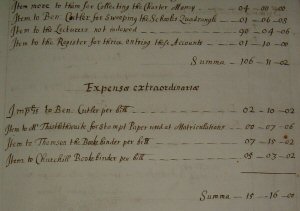 Item more to them for Collecting the Charter Money — 04 — 00 — 00
Item to Ben. Cutler for Sweeping the Schooles Quadrangle — 01 — 06 — 08
Item to the Lecturers not indowed — 90 — 04 — 06
Item to the Register for thrice entring these Accounts — 01 — 10 — 00
Summa — 106 — 11 — 02
Expensæ extraordinariæ
Imp:is to Ben: Cutler per bill — 02 — 10 — 02
Item to Mr for Stompt Paper used at Matriculations — 00 — 07 — 06
Item to Thomson the Bookebinder per bill — 07 — 15 — 02
Item to Churchill Bookebinder per bill — 05 — 03 — 02
Summa — 15 — 16 — 00